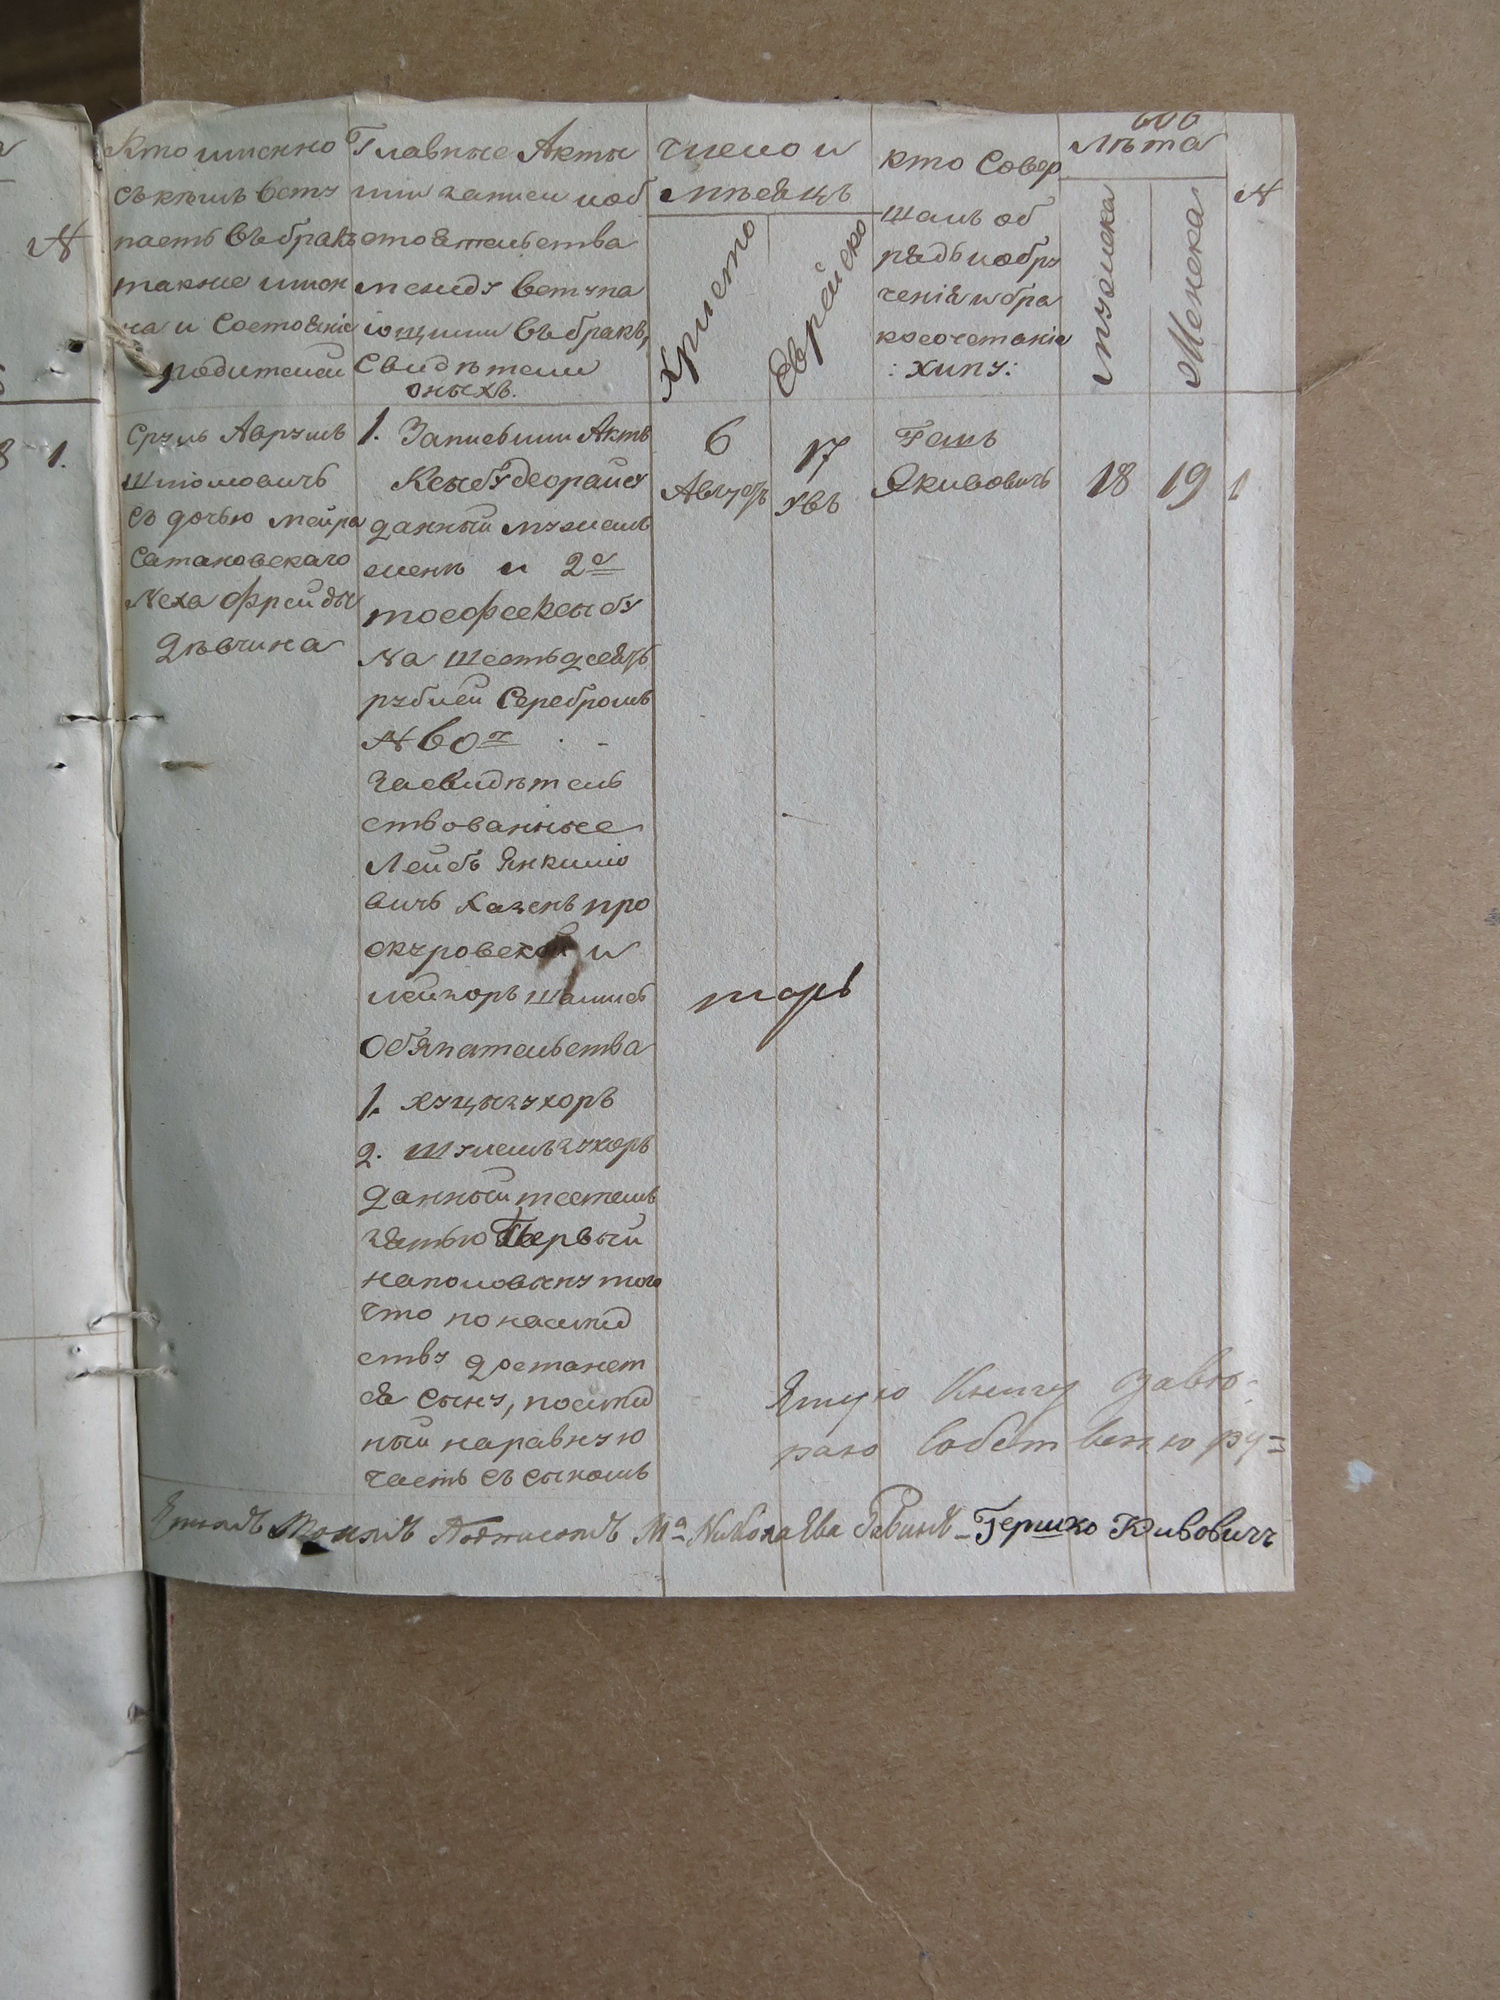 606
Кто именно
съ кѣмъ всту
паетъ въ бракъ
также имен
на и Состояніе
родителей
Главные Акты
или записи и об
стоятельства
между вступа
ющими въ бракъ,
Свидѣтели
оныхъ.
число и
мѣсяцъ
Христо
Еврейско
кто Совер
шалъ об
рядъ и обру
ченія и бра
косочетаніе
: хипу:
Лѣта
мужеска
Женска
№
№
1.
Сруль Аврумъ
Шліомовичъ
съ дочью Мейра
Сатановскаго
Неха Фрейды
Дѣвчина
1. Записьми Актъ
Ксыбу деорайсу
данный мужемъ
женѣ и 2е
тософсе ксыбу
На шестьдесятъ
рублей Серебромъ
засвидѣтель
ствованные
Лейбъ Янкиліо
вичъ Хазенъ про
скуровской и
Обязательства
1.
2. Шулемъ зухоръ
данный тестемъ
зятью Первый
на половыну того
что по наслѣд
ству достанет
ся сыну, послѣд
ный наравную
часть съ сыномъ
6
Августъ
17
Увъ
Гешъ
Якивовичъ
18
19
1
торъ
Ятую Книгу завѣ-
раю Собственною ру=
Подписомъ М: Николаева Равинъ - Гершко Кивовичъ